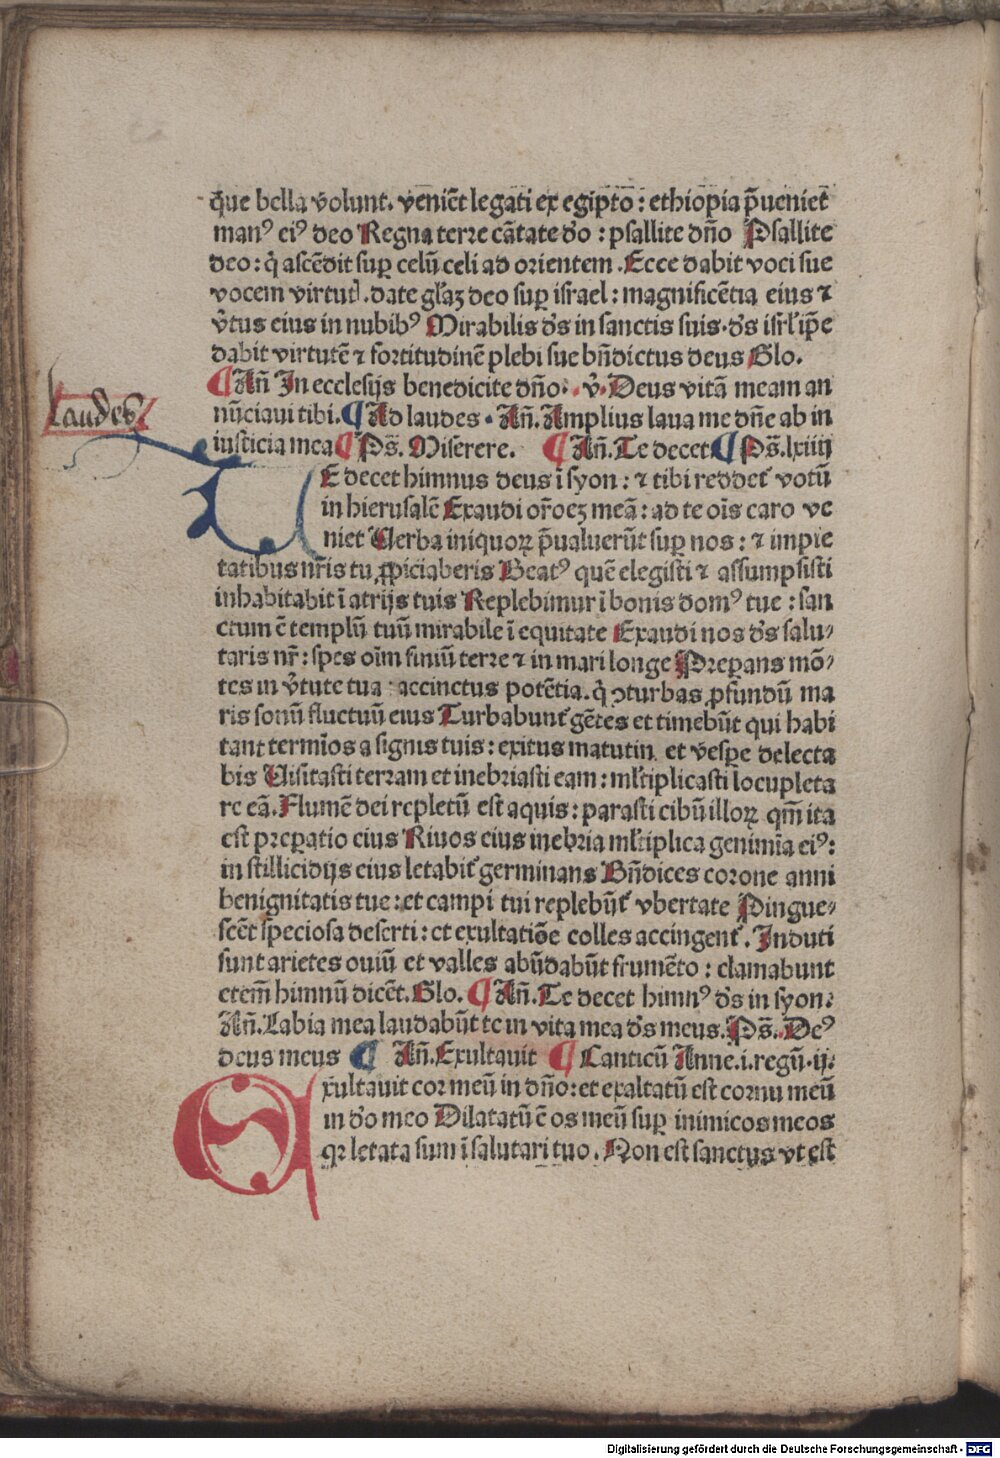 q̄ue bella v̄olunt. veniēt legati ex egipto : ethiopia p̄ueniet
manꝰ eiꝰ deo Regna terre cātate d̄o : psallite dn̄o Psallite
deo : q̄ ascēdit suꝑ celū celi ad orientem . Ecce dabit voci sue
vocem virtutꝭ . date gl̄aꝫ deo suꝑ israel : magnificētia eius ⁊
v̄tus eius in nubibꝰ Mirabilis d̄s in sanctis suis . d̄s isrl̄ ip̄e
dabit virtutē ⁊ fortitudinē plebi sue bn̄dictus deus Glo.
¶ An̄ In ecclesijs benedicite dn̄o . v̄. Deus vitā meam an
nūciaui tibi . ¶ Ad laudes . An̄. Amplius laua me dn̄e ab in
Laudes
iusticia mea ¶ Ps̄. Miserere. ¶ An̄. Te decet ¶ Ps̄. lxiiij
TE decet himnus deus ī syon : ⁊ tibi reddet᷑ votū
in hierusalē Exaudi or̄oeꝫ meā : ad te oīs caro ve
niet Verba iniquoꝝ p̄ualuerūt suꝑ nos : ⁊ impie
tatibus nr̄is tu ꝓpiciaberis Beatꝰ quē elegisti ⁊ assumpsisti
inhabitabit ī atrijs tuis Replebimur ī bonis domꝰ tue : san
ctum ē templū tuū mirabile ī equitate Exaudi nos d̄s salu⸗
taris nr̄ : spes oīm finiū terre ⁊ in mari longe Preꝑans mō⸗
tes in v̄tute tua : accinctus potētia . q̄ ꝯturbas ꝓfundū ma
ris sonū fluctuū eius Turbabunt᷑ gētes et timebūt qui habi
tant termīos a signis tuis : exitus matutin et vesꝑe delecta
bis Visitasti terram et inebriasti eam : ml̄tiplicasti locupleta
re eā . Flumē dei repletū est aquis : parasti cibū illoꝝ qm̄ ita
est preꝑatio eius Riuos eius inebria ml̄tiplica genimīa eiꝰ :
in stillicidijs eius letabit᷑ germinans Bn̄dices corone anni
benignitatis tue : et campi tui replebūt᷑ vbertate Pingue⸗
scēt speciosa deserti : et exultatiōe colles accingent᷑ . Induti
sunt arietes ouiū et valles abūdabūt frumēto : clamabunt
etem̄ himnū dicēt . Glo. ¶ An̄. Te decet himnꝰ d̄s in syon .
An̄. Labia mea laudabūt te in vita mea d̄s meus . Ps̄. Deꝰ
deus meus ¶ An̄. Exultauit ¶ Canticū Anne . i. regū . ij.
Exultauit cor meū in dn̄o : et exaltatū est cornu meū
in d̄o meo Dilatatū ē os meū suꝑ inimicos meos
qꝛ letata sum ī salutari tuo . Non est sanctus vt est
Digitalisierung gefördert durch die Deutsche Forschungsgemeinschaft - DFG